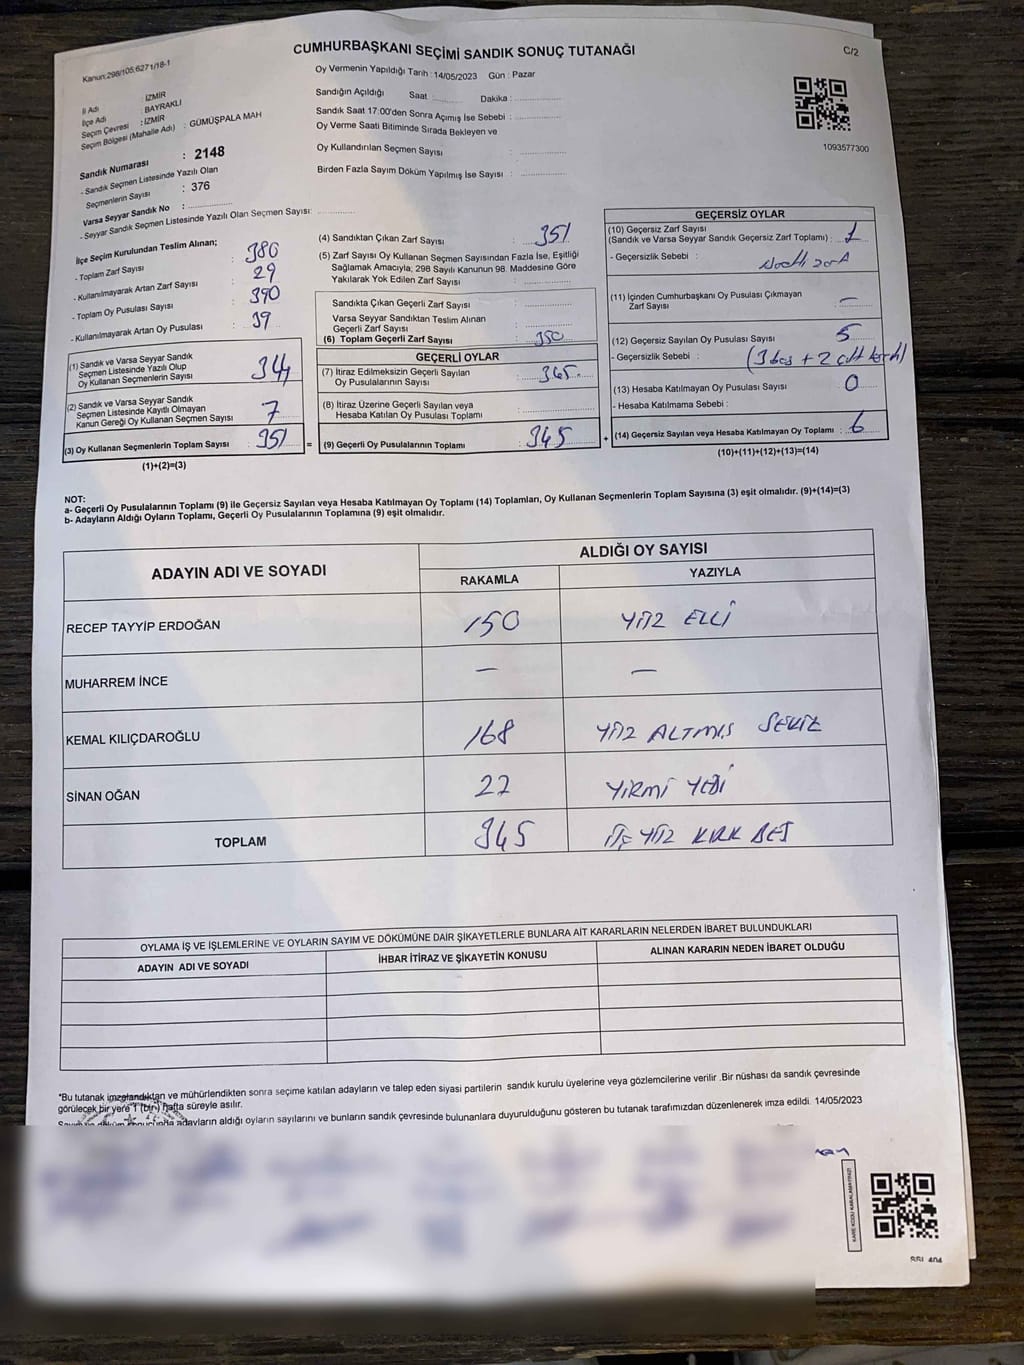 CUMHURBAŞKANI SEÇİMİ SANDIK SONUÇ TUTANAĞI
C/2
Kanun:298/105,6271/18-1
Oy Vermenin Yapıldığı Tarih : 14/05/2023 Gün : Pazar
İl Adı : İZMİR
İlçe Adı : BAYRAKLI
Seçim Çevresi : İZMİR
Seçim Bölgesi (Mahalle Adı) : GÜMÜŞPALA MAH
Sandık Numarası : 2148
- Sandık Seçmen Listesinde Yazılı Olan
Seçmenlerin Sayısı : 376
Varsa Seyyar Sandık No :
- Seyyar Sandık Seçmen Listesinde Yazılı Olan Seçmen Sayısı:
Sandığın Açıldığı Saat Dakika :
Sandık Saat 17:00'den Sonra Açımış İse Sebebi :
Oy Verme Saati Bitiminde Sırada Bekleyen ve
Oy Kullandırılan Seçmen Sayısı :
Birden Fazla Sayım Döküm Yapılmış İse Sayısı :
1093577300
İlçe Seçim Kurulundan Teslim Alınan;
- Toplam Zarf Sayısı : 380
- Kullanılmayarak Artan Zarf Sayısı : 29
- Toplam Oy Pusulası Sayısı : 390
- Kullanılmayarak Artan Oy Pusulası : 39
(1) Sandık ve Varsa Seyyar Sandık
Seçmen Listesinde Yazılı Olup
Oy Kullanan Seçmenlerin Sayısı : 344
(2) Sandık ve Varsa Seyyar Sandık
Seçmen Listesinde Kayıtlı Olmayan
Kanun Gereği Oy Kullanan Seçmen Sayısı : 7
(3) Oy Kullanan Seçmenlerin Toplam Sayısı : 351 =
(1)+(2)=(3)
(4) Sandıktan Çıkan Zarf Sayısı : 351
(5) Zarf Sayısı Oy Kullanan Seçmen Sayısından Fazla İse, Eşitliği
Sağlamak Amacıyla; 298 Sayılı Kanunun 98. Maddesine Göre
Yakılarak Yok Edilen Zarf Sayısı :
Sandıkta Çıkan Geçerli Zarf Sayısı :
Varsa Seyyar Sandıktan Teslim Alınan
Geçerli Zarf Sayısı :
(6) Toplam Geçerli Zarf Sayısı : 350
GEÇERLİ OYLAR
(7) İtiraz Edilmeksizin Geçerli Sayılan
Oy Pusulalarının Sayısı : 345
(8) İtiraz Üzerine Geçerli Sayılan veya
Hesaba Katılan Oy Pusulası Toplamı :
(9) Geçerli Oy Pusulalarının Toplamı : 345 +
GEÇERSİZ OYLAR
(10) Geçersiz Zarf Sayısı
(Sandık ve Varsa Seyyar Sandık Geçersiz Zarf Toplamı) : 1
- Geçersizlik Sebebi :
(11) İçinden Cumhurbaşkanı Oy Pusulası Çıkmayan
Zarf Sayısı : —
(12) Geçersiz Sayılan Oy Pusulası Sayısı : 5
- Geçersizlik Sebebi : (3 boş + 2 çift tercih)
(13) Hesaba Katılmayan Oy Pusulası Sayısı : 0
- Hesaba Katılmama Sebebi :
(14) Geçersiz Sayılan veya Hesaba Katılmayan Oy Toplamı : 6
(10)+(11)+(12)+(13)=(14)
NOT:
a- Geçerli Oy Pusulalarının Toplamı (9) ile Geçersiz Sayılan veya Hesaba Katılmayan Oy Toplamı (14) Toplamları, Oy Kullanan Seçmenlerin Toplam Sayısına (3) eşit olmalıdır. (9)+(14)=(3)
b- Adayların Aldığı Oyların Toplamı, Geçerli Oy Pusulalarının Toplamına (9) eşit olmalıdır.
ADAYIN ADI VE SOYADI
ALDIĞI OY SAYISI
RAKAMLA YAZIYLA
RECEP TAYYİP ERDOĞAN 150 YÜZ ELLİ
MUHARREM İNCE — —
KEMAL KILIÇDAROĞLU 168 YÜZ ALTMIŞ SEKİZ
SİNAN OĞAN 27 YİRMİ YEDİ
TOPLAM 345 ÜÇ YÜZ KIRK BEŞ
OYLAMA İŞ VE İŞLEMLERİNE VE OYLARIN SAYIM VE DÖKÜMÜNE DAİR ŞİKAYETLERLE BUNLARA AİT KARARLARIN NELERDEN İBARET BULUNDUKLARI
ADAYIN ADI VE SOYADI İHBAR İTİRAZ VE ŞİKAYETİN KONUSU ALINAN KARARIN NEDEN İBARET OLDUĞU
*Bu tutanak imzalandıktan ve mühürlendikten sonra seçime katılan adayların ve talep eden siyasi partilerin sandık kurulu üyelerine veya gözlemcilerine verilir .Bir nüshası da sandık çevresinde
görülecek bir yere 1 (bir) hafta süreyle asılır.
adayların aldığı oyların sayılarını ve bunların sandık çevresinde bulunanlara duyurulduğunu gösteren bu tutanak tarafımızdan düzenlenerek imza edildi. 14/05/2023
KARE KODU KARALAMAYINIZ!